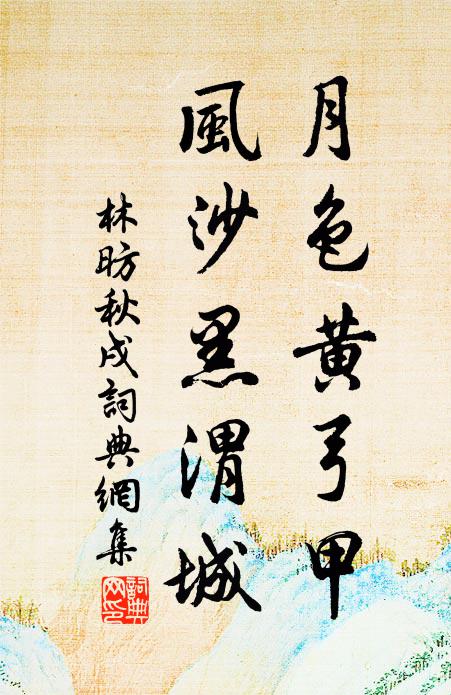 月色黄弓甲
風沙黑渭城
林昉秋戍詞典網集
詞典